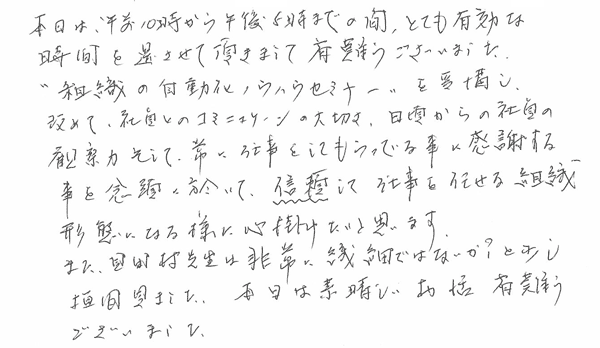 本日は、午前10時から午後5時までの間、とても有効な
時間を過させて頂きまして有難うございました。
"組織の自動化ノウハウセミナー"を受講し、
改めて、社員とのコミニュケーションの大切さ、日頃からの社員の
観察力そして、常に仕事をしてもらっている事に感謝する
事を念頭に於いて、信頼して仕事を任せる組織
形態になる様に心掛けたいと思います。
また、田村先生は非常に繊細ではないか?と少し
垣間見ました。本日は素晴しいお話有難う
ございました。